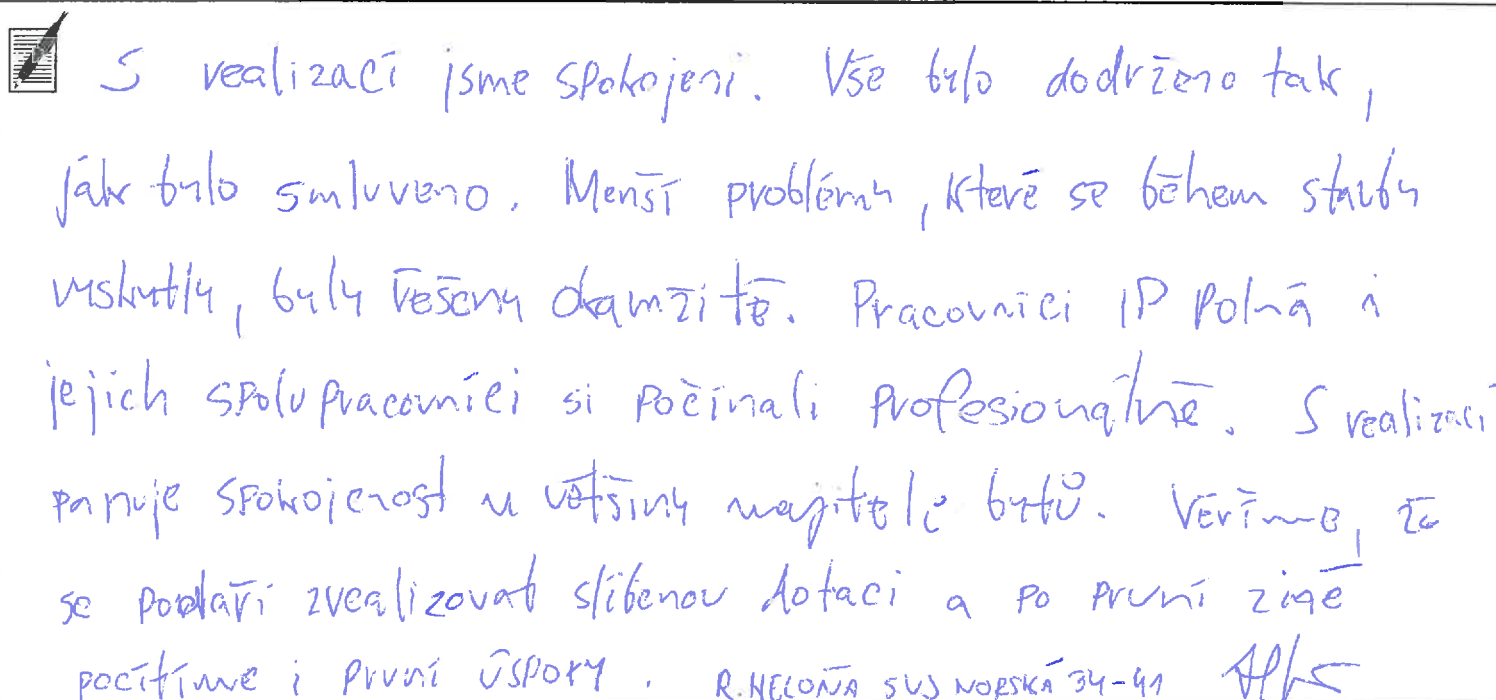 S realizací jsme spokojeni. Vše bylo dodrženo tak,
jak bylo smluveno. Menší problémy, které se během stavby
vyskytly, byly řešeny okamžitě. Pracovníci IP Polná i
jejich spolupracovníci si počínali profesionálně. S realizací
panuje spokojenost u většiny majitelů bytů. Věříme, že
se podaří zrealizovat slíbenou dotaci a po první zimě
pocítíme i první úspory. R. HELOŇA SVJ NORSKÁ 34-41